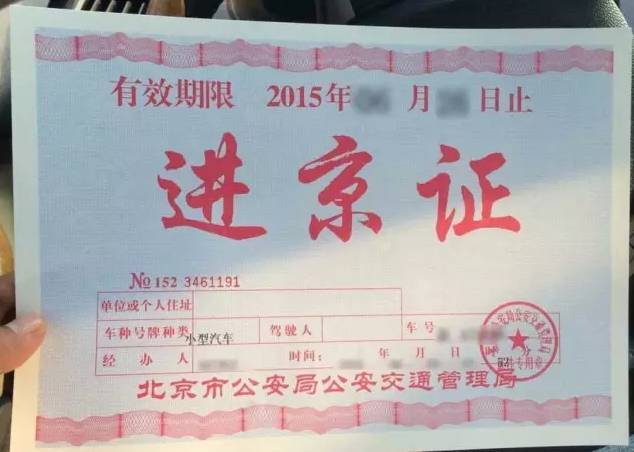 有效期限 2015年 月 日止
进京证
№ 152 3461191
单位或个人住址
车种号牌种类 小型汽车 驾驶人 车号
经办人 时间: 年 月 日 时 分
北京市公安局公安交通管理局